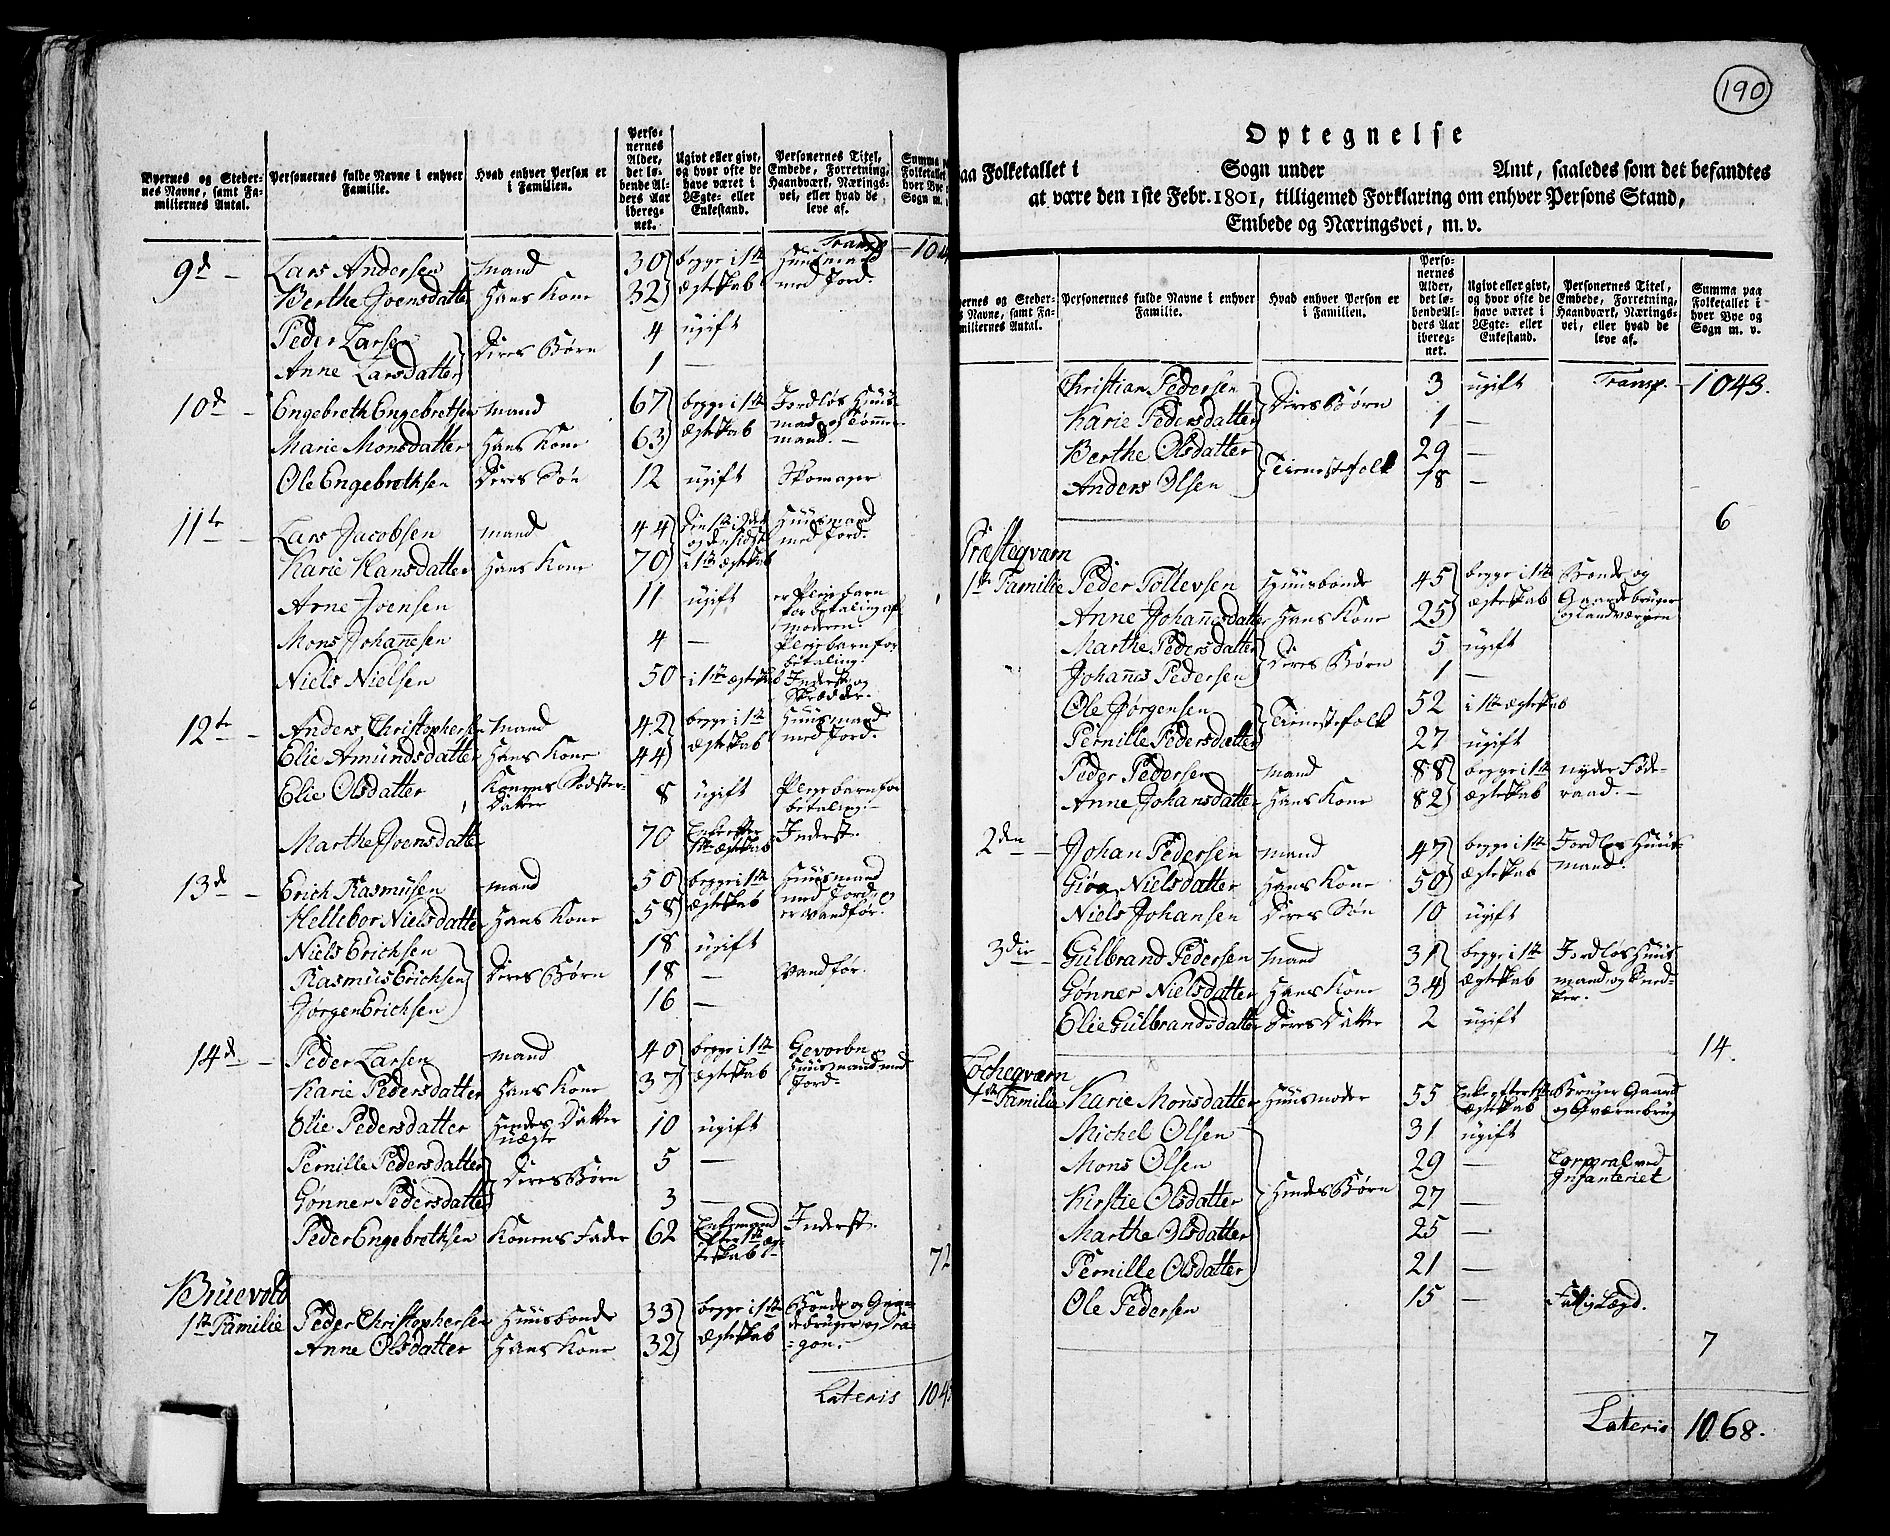 190
Byernes og Steder-
nes Navne, samt Fa-
miliernes Antal.
Personernes fulde Navne i enhver
Familie.
Hvad enhver Person er
i Familien.
Perso-
nernes
Alder,
det lø-
bende Al-
ders Aar
ibereg-
net.
Ugivt eller givt,
og hvor ofte de
have været i
Ægte- eller
Enkestand.
Personernes Titel,
Embede, Forretning,
Haandværk, Nærings-
vei, eller hvad de
leve af.
Summa
Folketallet
hver Bye
Sogn m.
Transp
9d - Lars Andersen mand 30 begge i 1te Huusmand
Berthe Joensdatter Hans Kone 32 ægteskab med Jord.
Peder Larsen 4 ugift
Deres Børn
Anne Larsdatter 1 —
10d - Engebreth Engebrethsen mand 67 begge i 1te Jordløs Huus-
Marie Monsdatter Hans Kone 63 ægteskab mand og Tømmer-
mand. —
Ole Engebrethsen Deres Søn 12 ugift Skomager
11te - Lars Jacobsen mand 44 Huusmand
Karie Hansdatter Hans Kone 70 i 1te ægteskab med Jord.
Arne Joensen 11 ugift er Pleiebarn
for betaling af
moderen.
Mons Johannesen 4 — Pleiebarn for
betaling.
Niels Nielsen 50 i 1te ægteskab Inderst og
Skrædder.
12te - Anders Christophersen mand 42 begge i 1te Huusmand
Elie Amundsdatter Hans Kone 44 ægteskab med Jord.
Elie Olsdatter Konens Søster- 8 ugift Pleiebarn for
Datter betaling.
Marthe Joensdatter 70 Enke efter Inderst.
1te ægteskab
13de - Erich Rasmusen mand 50 begge i 1te Huusmand
Hellebor Nielsdatter Hans Kone 58 ægteskab med Jord og
er vandfør.
Niels Erichsen 18 ugift
Rasmus Erichsen Deres Børn 18 — Vandfør.
Jørgen Erichsen 16 —
14de - Peder Larsen mand 40 begge i 1te Gevorben
Karie Pedersdatter Hans Kone 37 ægteskab Huusmand med
Jord.
Elie Pedersdatter Hendes Datter 10 ugift
uægte
Pernille Pedersdatter 5 —
Deres Børn
Gønner Pedersdatter 3 —
Peder Engebrethsen Konens Fader 62 Enkemand Inderst.
efter 1te æg-
teskab
72
Bruevold
1te Familie Peder Christophersen Huusbonde 33 begge i 1te Bonde og Gaar-
Anne Olsdatter Hans Kone 32 ægteskab debruger og Dra-
gon.
Lateris
Optegnelse
paa Folketallet i Sogn under Amt, saaledes som det befandtes
at være den 1ste Febr. 1801, tilligemed Forklaring om enhver Persons Stand,
Embede og Næringsvei, m. v.
yernes og Steder-
s Navne, samt Fa-
miliernes Antal.
Personernes fulde Navne i enhver
Familie.
Hvad enhver Person er
i Familien.
Perso-
nernes
Alder,
det lø-
bende Al-
ders Aar
ibereg-
net.
Ugivt eller givt,
og hvor ofte de
have været i
Ægte- eller
Enkestand.
Personernes Titel,
Embede, Forretning,
Haandværk, Nærings-
vei, eller hvad de
leve af.
Summa paa
Folketallet i
hver Bye og
Sogn m. v.
Christian Pedersen 3 ugift Transp. - 1043.
Deres Børn
Karie Pedersdatter 1 —
Berthe Olsdatter 29 —
Tienestefolk
Anders Olsen 18 —
6
Præsteqværn
1te Familie Peder Tollevsen Huusbonde 45 begge i 1te Bonde og
Anne Johannesdatter Hans Kone 25 ægteskab Gaardebruger
og Landværgen
Marthe Pedersdatter 5 ugift
Deres Børn
Johannes Pedersen 1 —
Ole Jørgensen 52 i 1te ægteskab
Tienestefolk
Pernille Pedersdatter 27 ugift
Peder Pedersen mand 88 begge i 1te nyder Føde-
Anne Johansdatter Hans Kone 82 ægteskab raad. —
2den - Johan Pedersen mand 47 begge i 1te Jordløs Huus-
Giøa Nielsdatter Hans Kone 50 ægteskab mand.
Niels Johansen Deres Søn 10 ugift
3die - Gulbrand Pedersen mand 31 begge i 1te Jordløs Huus
Gønner Nielsdatter Hans Kone 34 ægteskab mand og Sned-
ker.
Elie Gulbrandsdatter Deres Datter 2 ugift
14.
1te Familie Karie Monsdatter Huusmoder 55 Enke efter 1te Bruger Gaard
ægteskab og Qværnebrug
Michel Olsen 31 ugift
Mons Olsen 29 — Corporal ved
Infanteriet
Kirstie Olsdatter Hendes Børn 27 —
Marthe Olsdatter 25 —
Pernille Olsdatter 21 —
Ole Pedersen 15 — Fattig Lægd.
7
Lateris 1068.